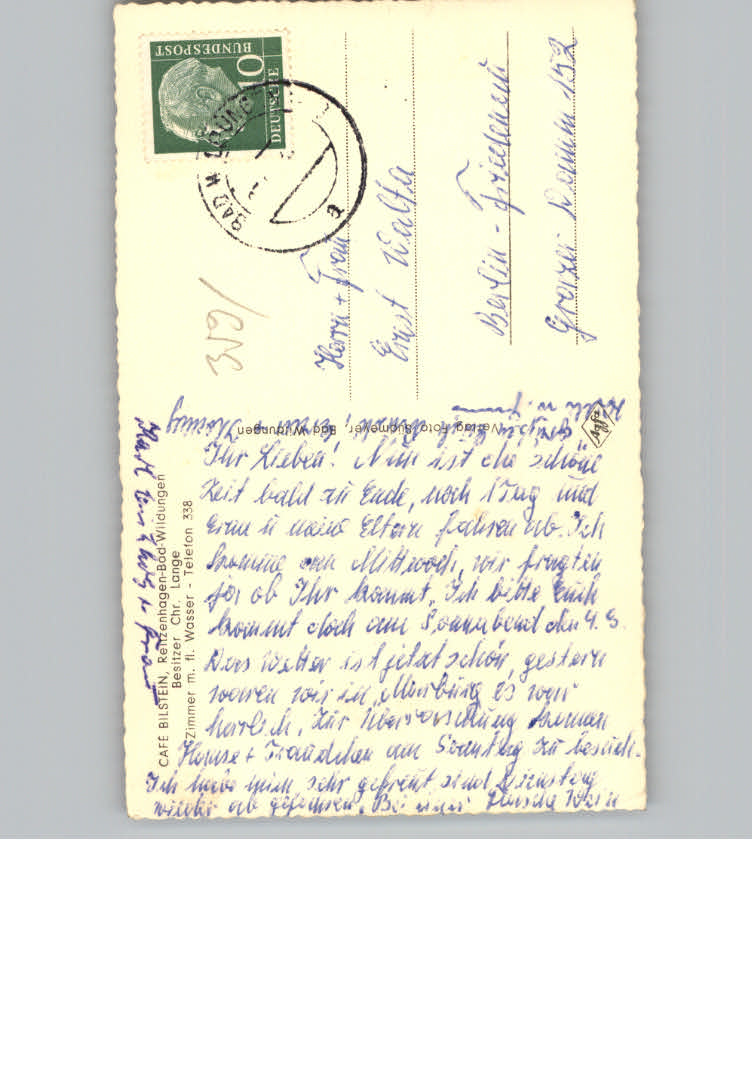 CAFÉ BILSTEIN, Reitzenhagen-Bad-Wildungen
Besitzer Chr. Lange
Zimmer m. fl. Wasser - Telefon 338
Ihr Lieben! Nun ist die schöne
Zeit bald zu Ende, noch 1 Tag und
Erna u meine Eltern fahren ab. Ich
komme am Mittwoch, wir fragten
ja ob Ihr kommt, Ich bitte Euch
kommt doch am Sonnabend den 4.
Das Wetter ist jetzt schön, gestern
waren wir in Marburg es war
herrlich, Zur Überraschung kamen
+ Traudchen am Sonntag zu besuch.
Ich habe mich sehr gefreut, sind Dienstag
wieder ab gefahren. Bei einer Flasche Wein
Verlag Foto Sugmeyer, Bad Wildungen
Agfa
DEUTSCHE BUNDESPOST
10
BAD WILDUNGEN
a
Herrn + Frau
Ernst
Berlin-Friedenau
152